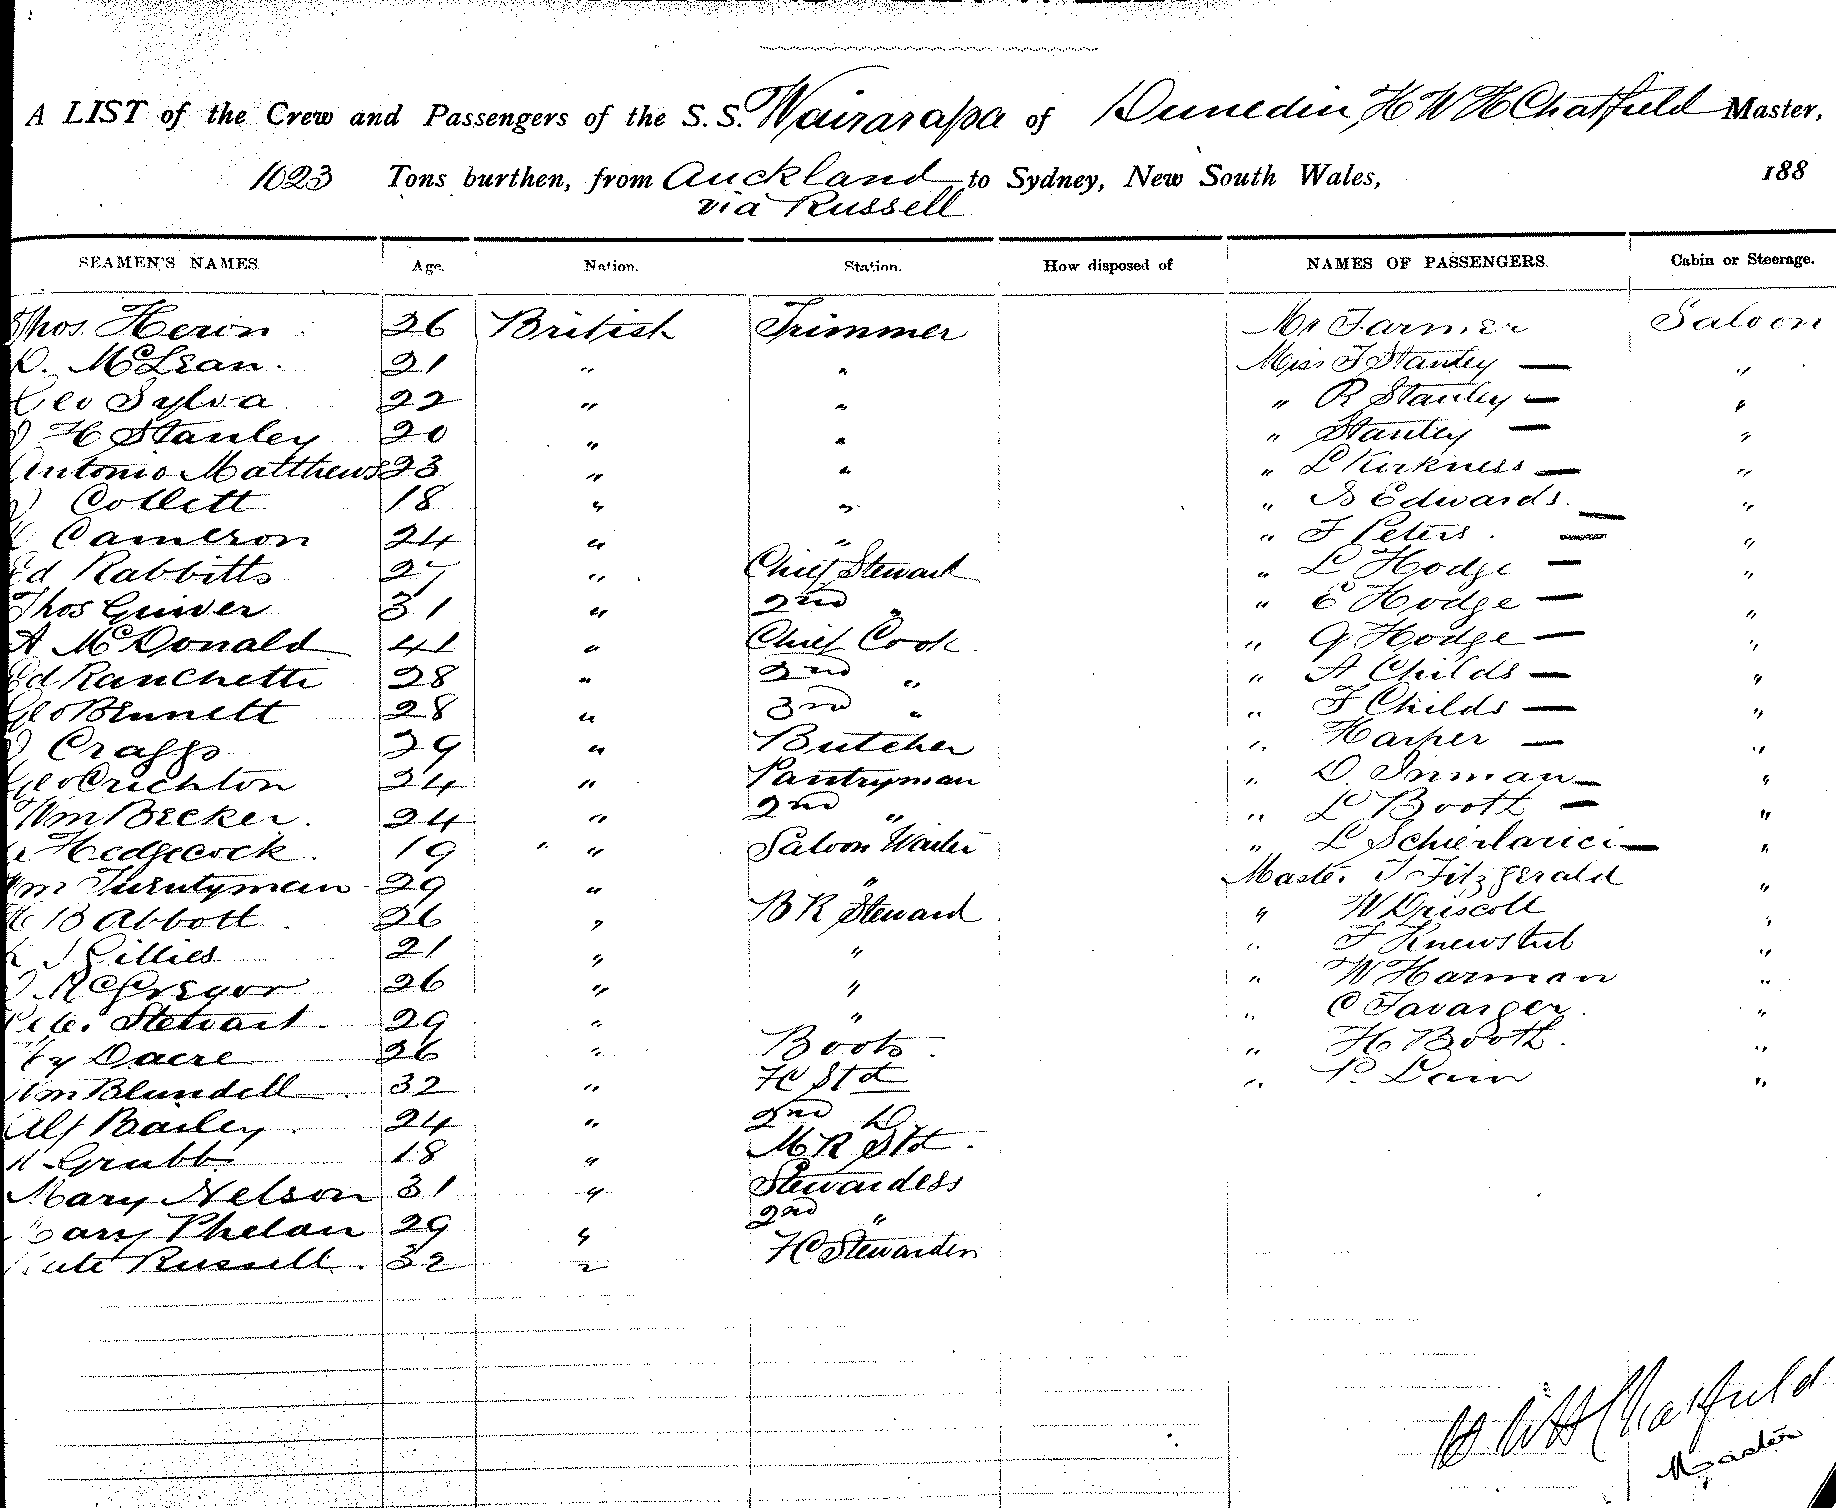 A LIST of the Crew and Passengers of the S.S. Wairarapa of Dunedin, H W H Chatfield Master,
1023 Tons burthen, from Auckland to Sydney, New South Wales, 188
via Russell
SEAMEN'S NAMES Age. Nation. Station. How disposed of NAMES OF PASSENGERS. Cabin or Steerage.
Thos. Heron 26 British Trimmer Mr Farmer Saloon
D. McLean. 21 " " Miss F Stanley — "
Geo Sylva 22 " " " R Stanley — "
J H Stanley 20 " " " Stanley — "
Antonio Matthews 23 " " " L Kirkness — "
Collett 18 " " " B Edwards. — "
Cameron 24 " " " F Peters. — "
Ed Rabbitts 27 " Chief Steward " L Hodge — "
Thos Guiver 31 " 2nd " " E Hodge — "
A McDonald 41 " Chief Cook " G Hodge — "
Ed Ranchette 28 " 2nd " " A Childs — "
Geo Bennett 28 " 3rd " " F Childs — "
Craggs 29 " Butcher " Harper — "
Geo Crichton 24 " Pantryman " D. Inman — "
Wm Becker. 24 " 2nd " " L Booth — "
Hedgecock. 19 " " Saloon Waiter " L — "
Wm 29 " " Master T Fitzgerald "
H B Abbott 26 " B R Steward " W Driscoll "
J Gillies 21 " " " F Knewstub "
McGregor 26 " " " W Harman "
Peter Stewart. 29 " " " C Tavarger. "
Hy Dacre 26 " Boots. " H Booth. "
Wm Blundell 32 " F C Std " P. Dain "
Alf Bailey. 24 " 2nd Do
Grubb 18 " M R Std.
Mary Nelson 31 " Stewardess
Mary Phelan 29 " 2nd "
Kate Russell. 32 " F C Stewardess
H W H Chatfield
Master